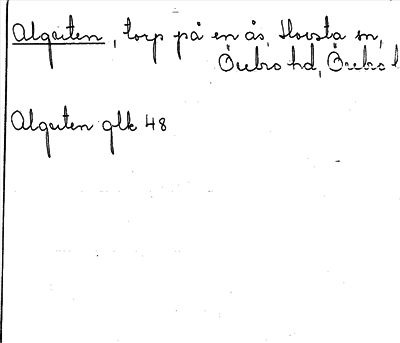 Algeiten, torp på en ås, Hovsta sn,
Örebro hd, Örebro l
Algeiten glk 48